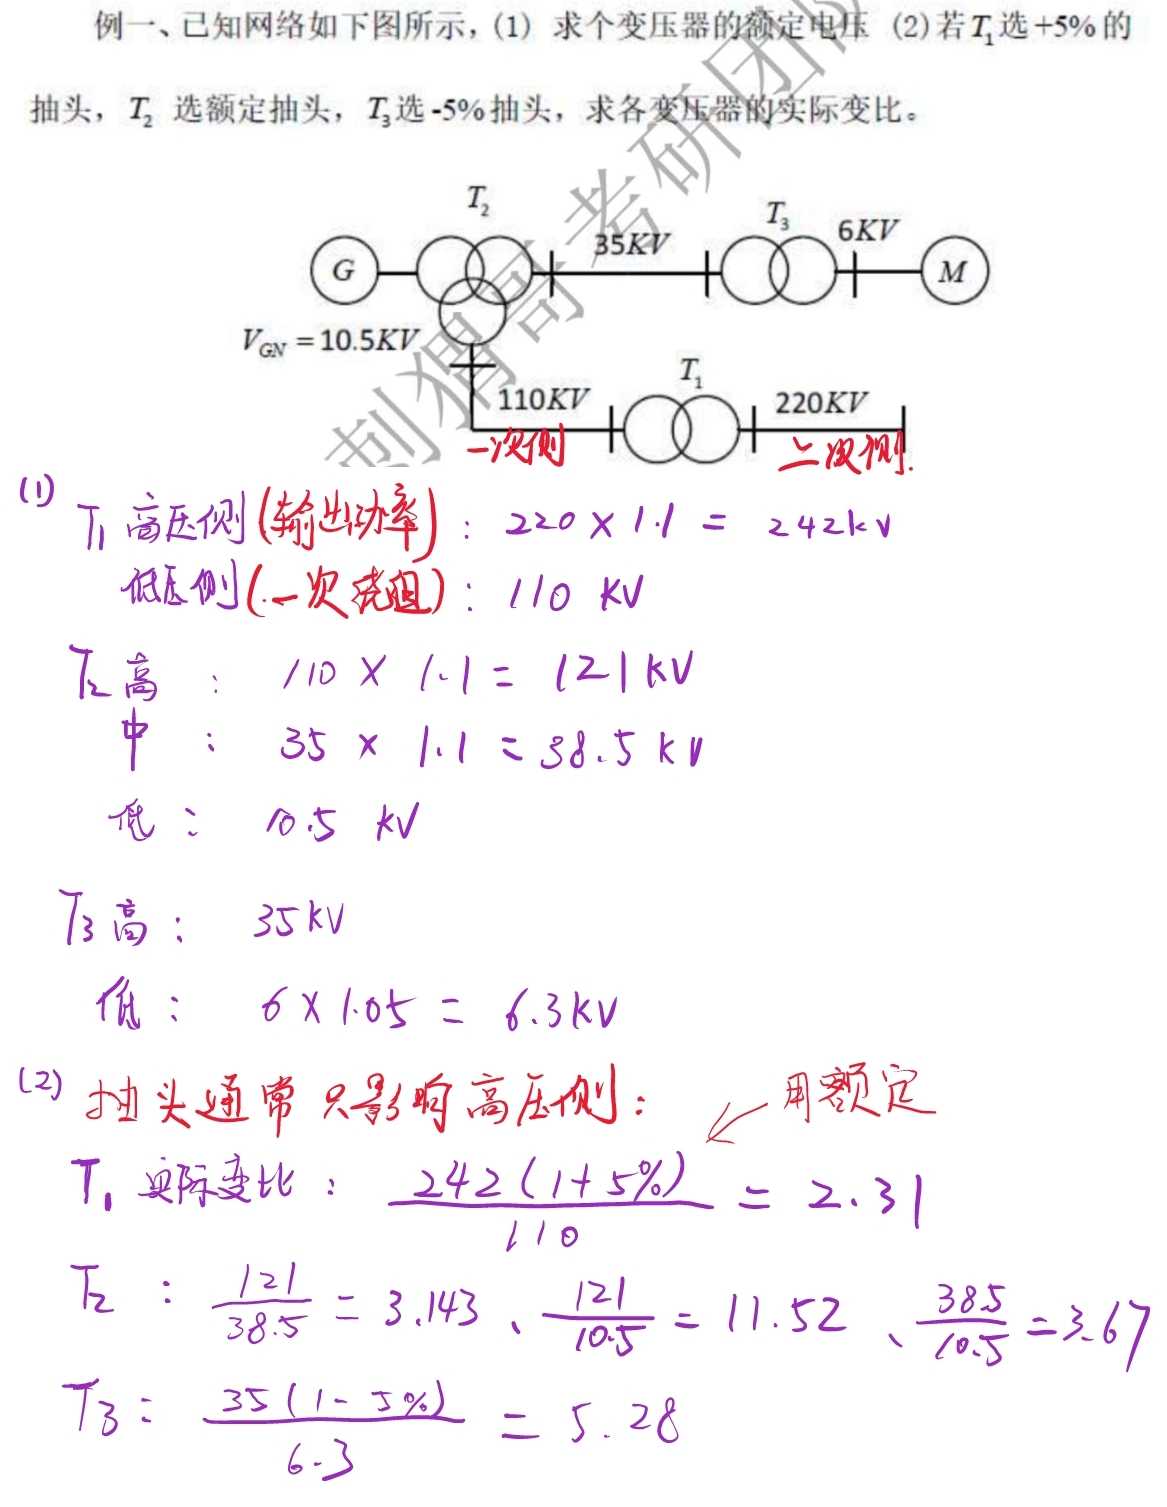 例一、已知网络如下图所示，(1) 求个变压器的额定电压 (2)若T₁选+5%的
抽头，T₂ 选额定抽头，T₃选-5%抽头，求各变压器的实际变比。
刺猬哥考研团队
T₂
T₃
35KV
6KV
G
M
V_GN = 10.5KV
T₁
110KV
220KV
一次侧
二次侧.
(1)
T₁ 高压侧(输出功率)：220 × 1.1 = 242kV
低压侧(一次绕组)：110 KV
T₂ 高 ： 110 × 1.1 = 121KV
中 ： 35 × 1.1 = 38.5 KV
低 ： 10.5 KV
T₃ 高 ： 35KV
低 ： 6 × 1.05 = 6.3KV
(2) 抽头通常只影响高压侧： 用额定
T₁ 实际变比 ： 242(1+5%)/110 = 2.31
T₂ ： 121/38.5 = 3.143 、 121/10.5 = 11.52 、 38.5/10.5 = 3.67
T₃ ： 35(1-5%)/6.3 = 5.28